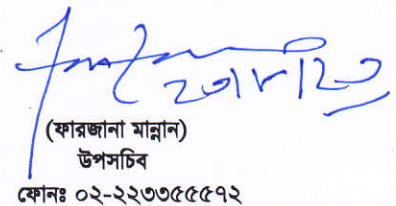 (ফারজানা মান্নান)
উপসচিব
ফোনঃ ০২-২২৩৩৫৫৫৭২